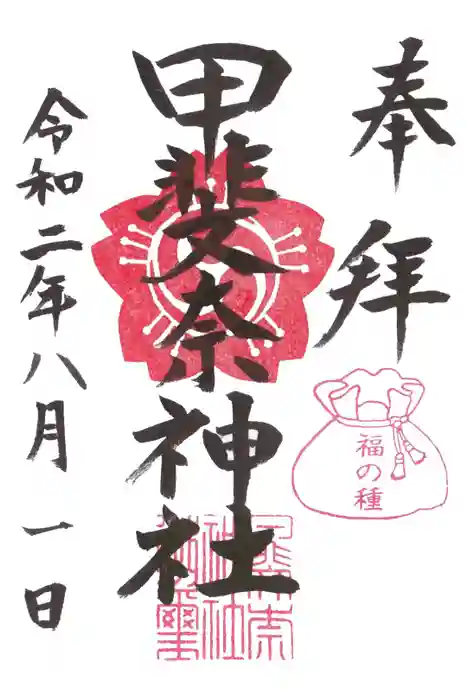 奉拝
福の種
甲斐奈神社
令和二年八月一日